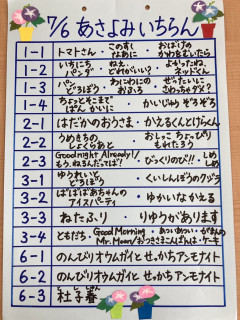 7/6 あさよみいちらん
1-1 トマトさん・このすしなあに・おばけのかわをむいたら
1-2 いちにちパンダ ねえ、どれがいい? よかったね、ネッドくん
1-3 パンどろぼう・わにわにのおふろ・ぜったいにさわっちゃダメ?
1-4 ちょっとそこまでぱんかいに・かいじゅうぞろぞろ
2-1 はだかのおうさま・かえるくんとけらくん
2-2 うめきちのしょくらあと・おしっこちょっぴりもれたろう
2-3 Goodnight Already!/もう、ねるんだってば!・びっくりのど!!・しめしめ
3-1 ゆうれいとどろぼう・くいしんぼうのクジラ
3-2 ばばばあちゃんのアイスパーティ・ゆかいなかえる
3-3 ねたふり・りゅうがあります
3-4 ともだち・Good Morning・あついあつい・がまんのケーキ
Mr. Moon/おつきさまこんばんは
6-1 のんびりオウムガイとせっかちアンモナイト
6-2 のんびりオウムガイとせっかちアンモナイト
6-3 杜子春
とししゅん